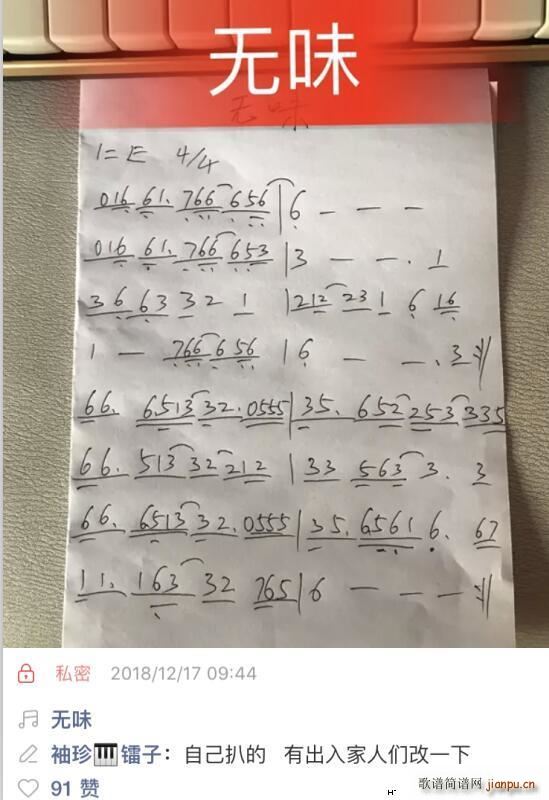 无味
无味
1=E 4/4
016 61. 766 656 | 6 — — —
016 61. 766 653 | 3 — — . 1
36 63 32 1 | 212 23 1 6 16
1 — 766 656 | 6 — — . 3 :||
66. 6513 32. 0555 | 35. 652 253 335
66. 513 32 212 | 33 563 3. 3
66. 6513 32. 0555 | 35. 6561 6. 67
11. 163 32 765 | 6 — — — :||
私密 2018/12/17 09:44
无味
袖珍🎹镭子：自己扒的 有出入家人们改一下
91 赞
歌谱简谱网
jianpu.cn